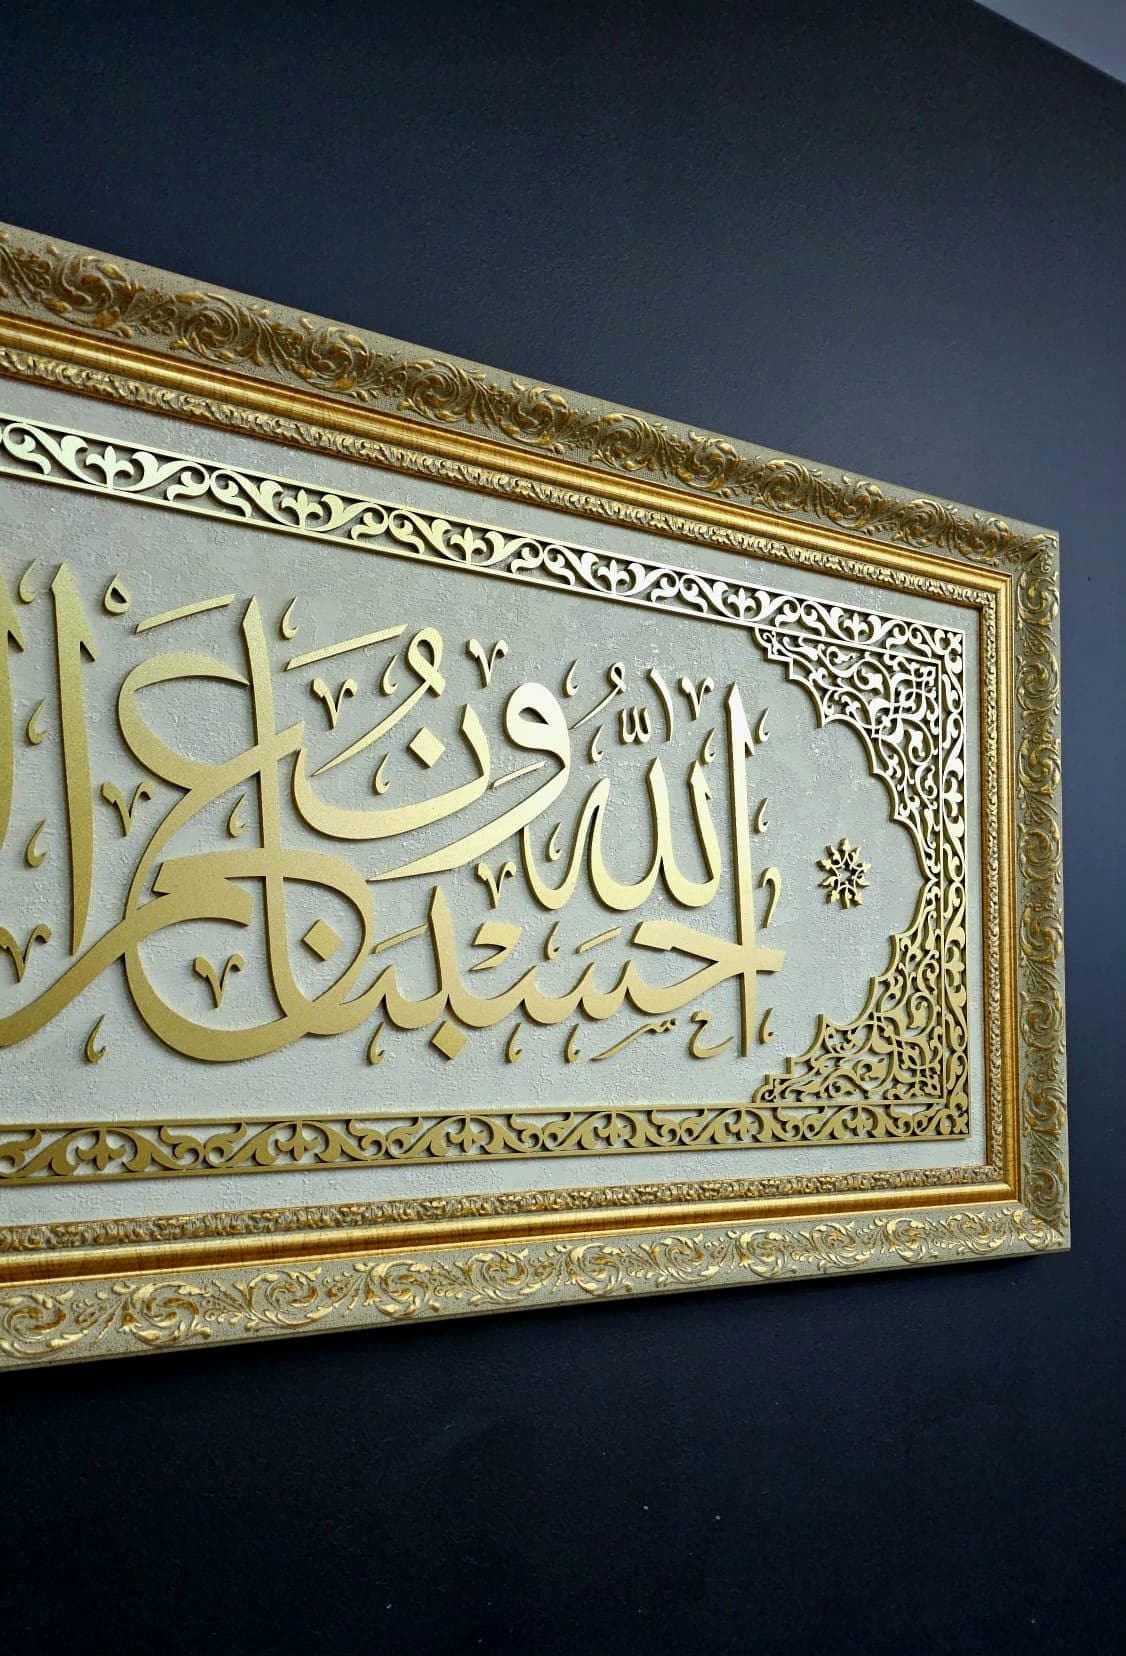 حسبنا الله ونعم ال